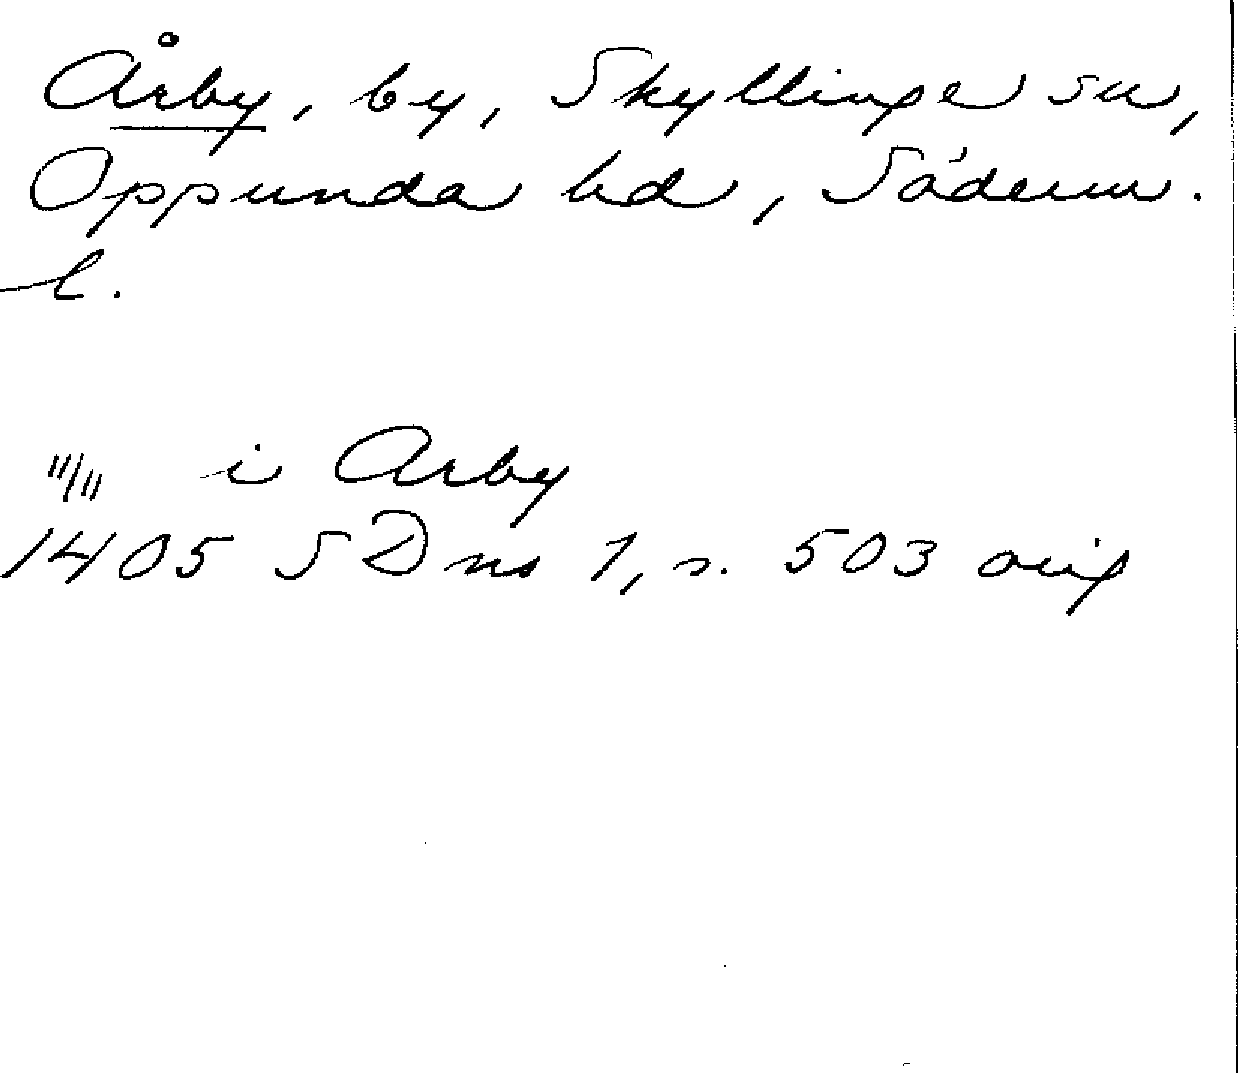 Årby, by, Skyllinge sn,
Oppunda hd, Söderm.
l.
11/11 i Arby
1405 SDns 1, s. 503 orig